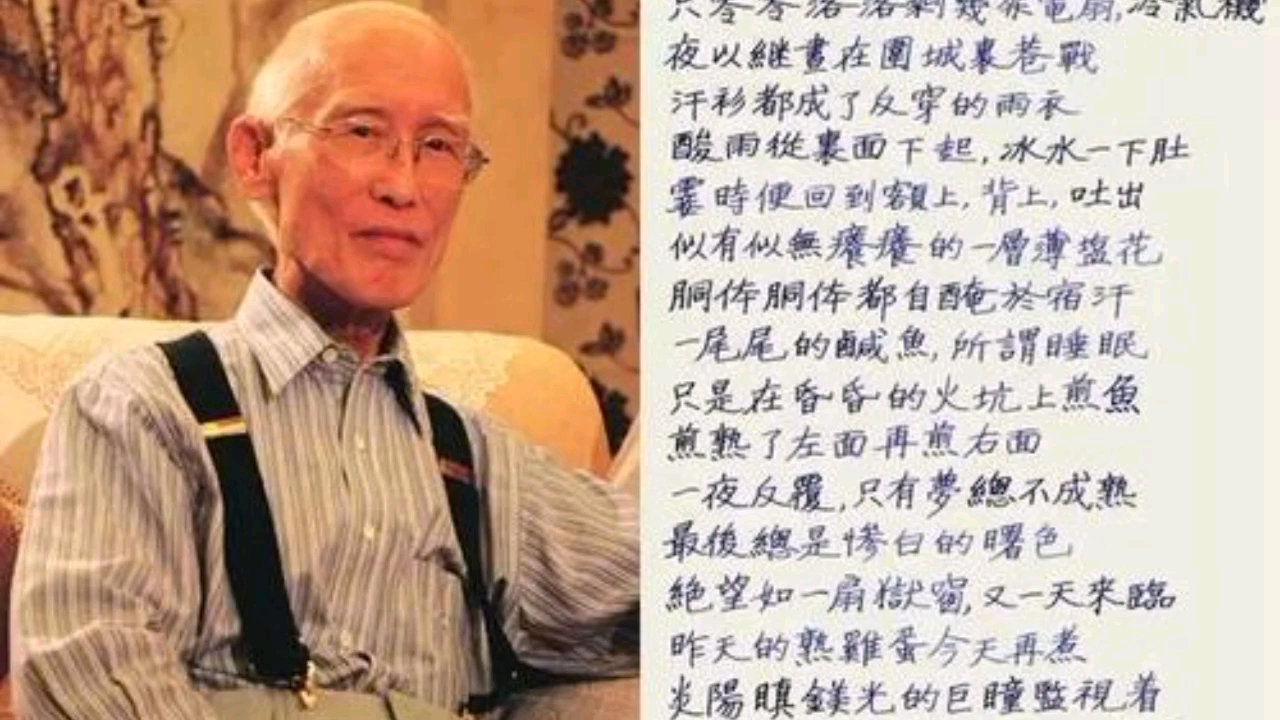 只零零落落剩幾架電扇,冷氣機
夜以繼晝在圍城裏巷戰
汗衫都成了反穿的雨衣
酸雨從裏面下起,冰水一下肚
霎時便回到額上,背上,吐出
似有似無癢癢的一層薄盐花
胴体胴体都自醃於宿汗
一尾尾的鹹魚,所謂睡眠
只是在昏昏的火坑上煎魚
煎熟了左面再煎右面
一夜反覆,只有夢總不成熟
最後總是慘白的曙色
絕望如一扇獄窗,又一天來臨
昨天的熟雞蛋今天再煮
炎陽瞋鎂光的巨瞳監視着